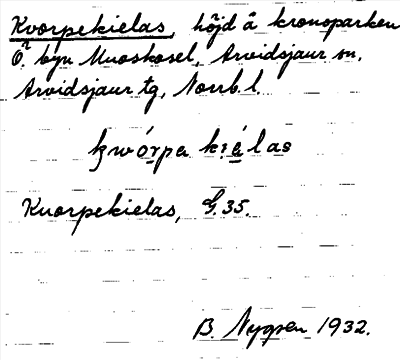 Kvorpekielas, höjd å kronoparken
Ö. byn Muoskosel, Arvidsjaur sn,
Arvidsjaur tg, Norrb. l.
kwórpa kiélas
Kuorpekielas, G. 35.
B. Nygren 1932.